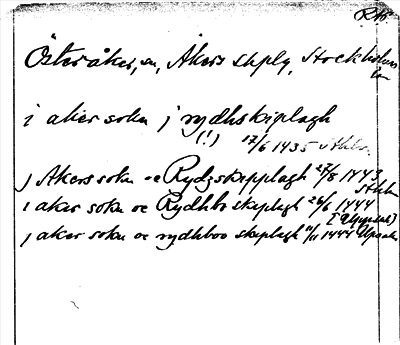 RA
Österåker, sn, Åkers skplg, Stockholms
län
i aker sokn j rydhskiplagh
(!) 17/6 1435 Sthlm
j Akers sokn oc Rydzskepplagh 27/8 1443
Sthlm
i aker sokn oc Rydhbo skeplagh 26/6 1444
[Uppsala]
j aker sokn oc rydhboo skeplagh 11/11 1444 Upsala